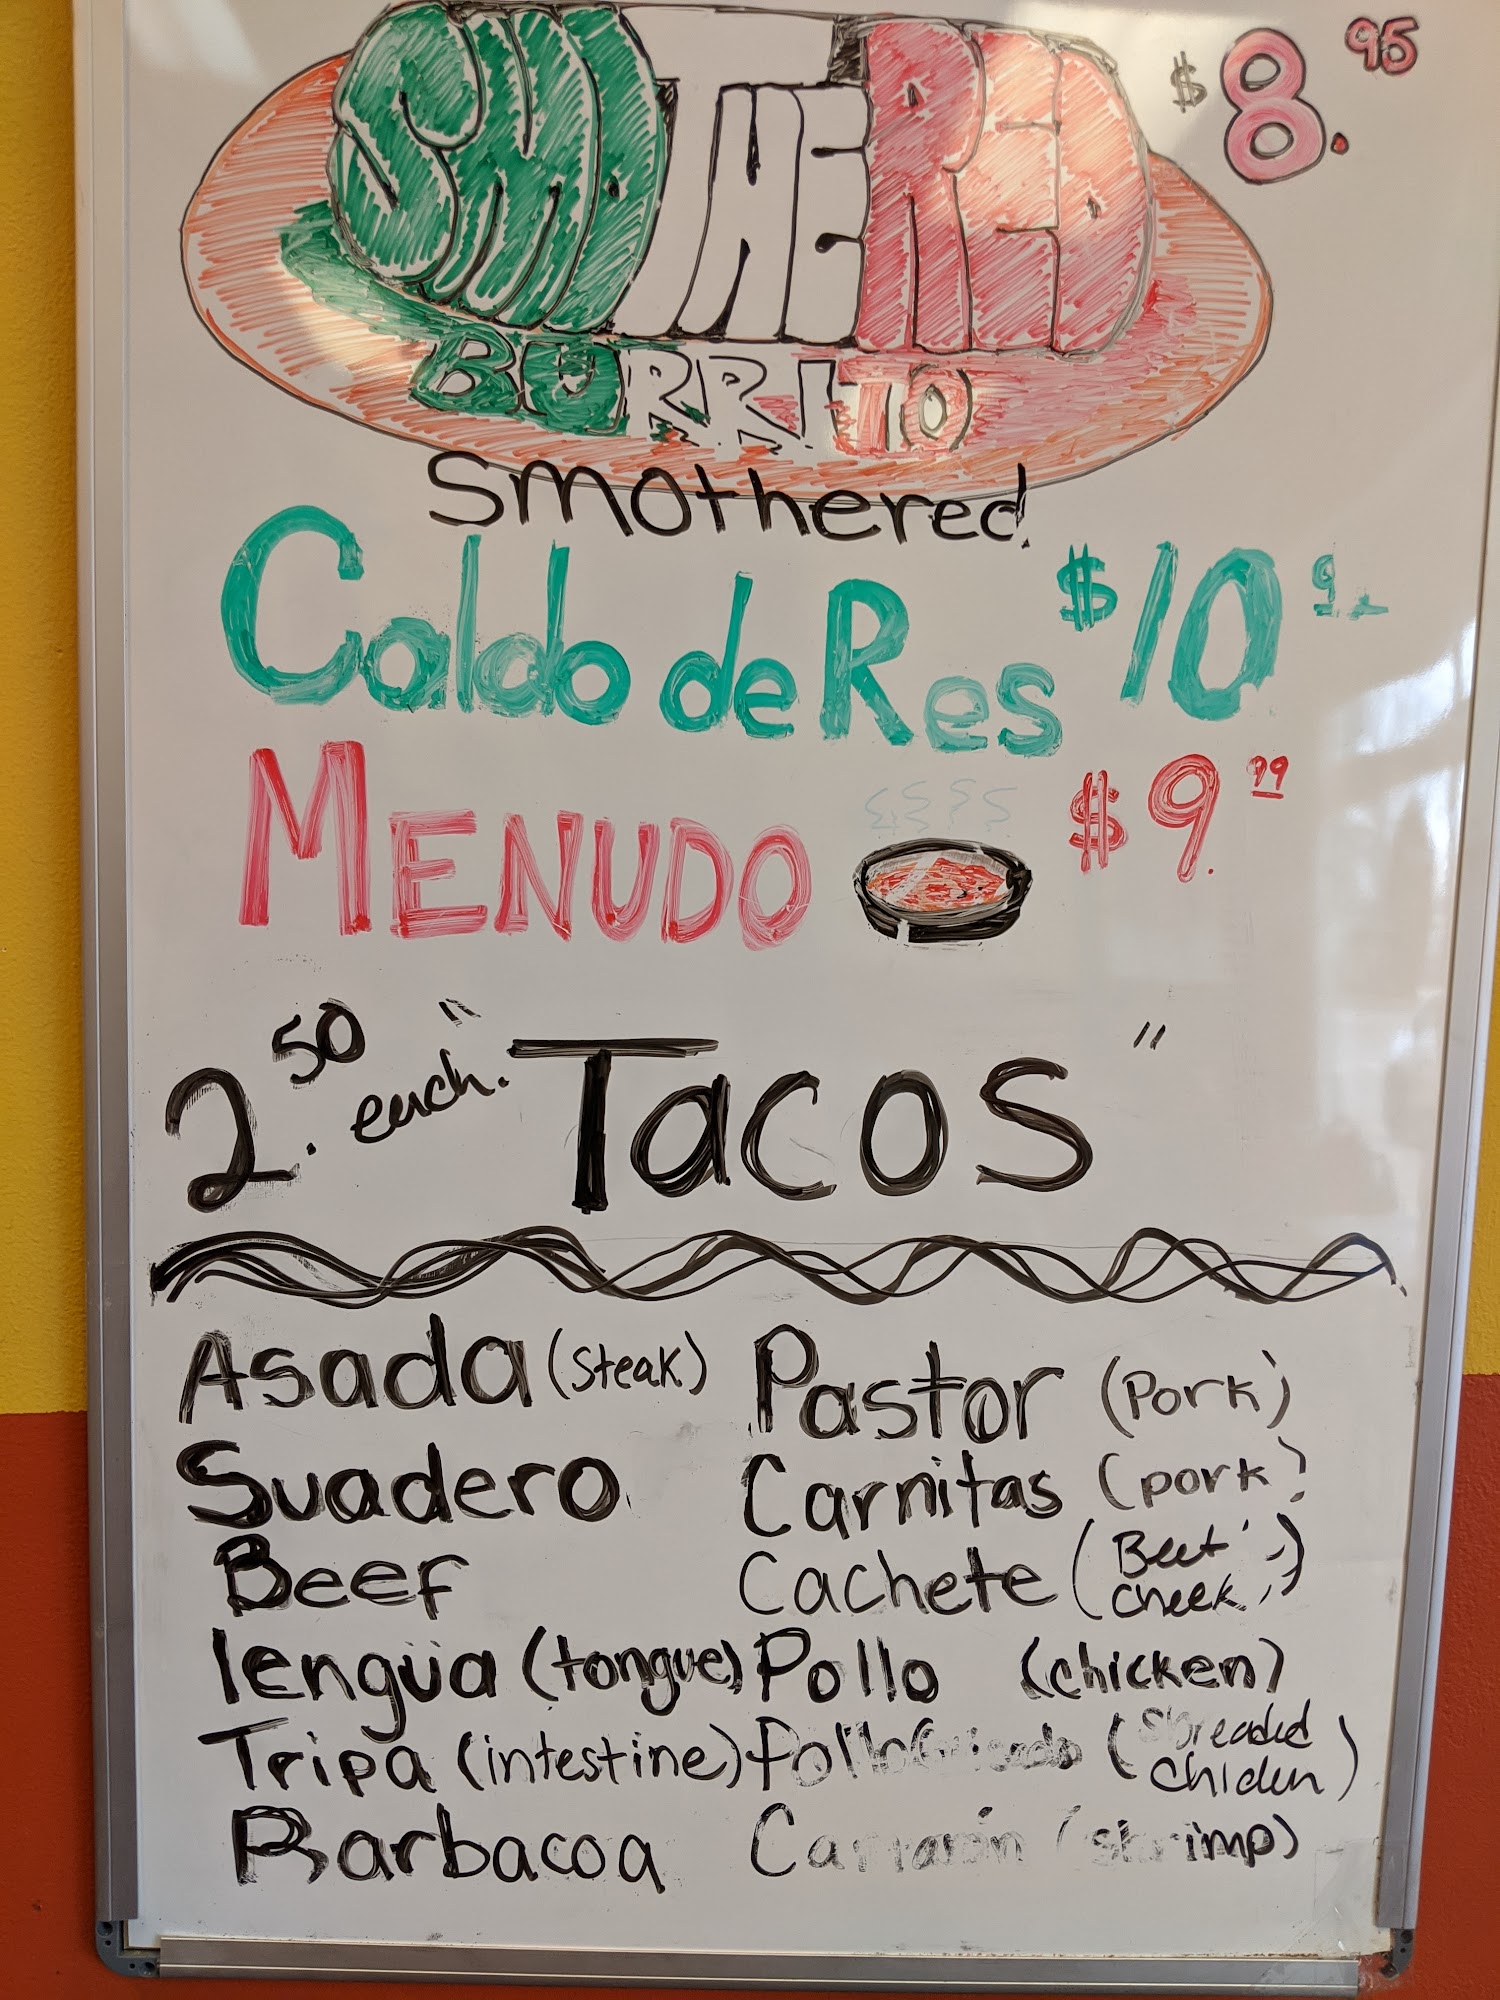 SMOTHERED $8.95
BURRITO
smothered.
Caldo de Res $10
MENUDO $9.99
2.50 each. "Tacos"
Asada (steak) Pastor (Pork)
Suadero Carnitas (pork)
Beef Cachete (Beef cheek)
lengüa (tongue) Pollo (chicken)
Tripa (intestine) Pollo Guisado (Shreaded chicken)
Barbacoa Camarón (shrimp)